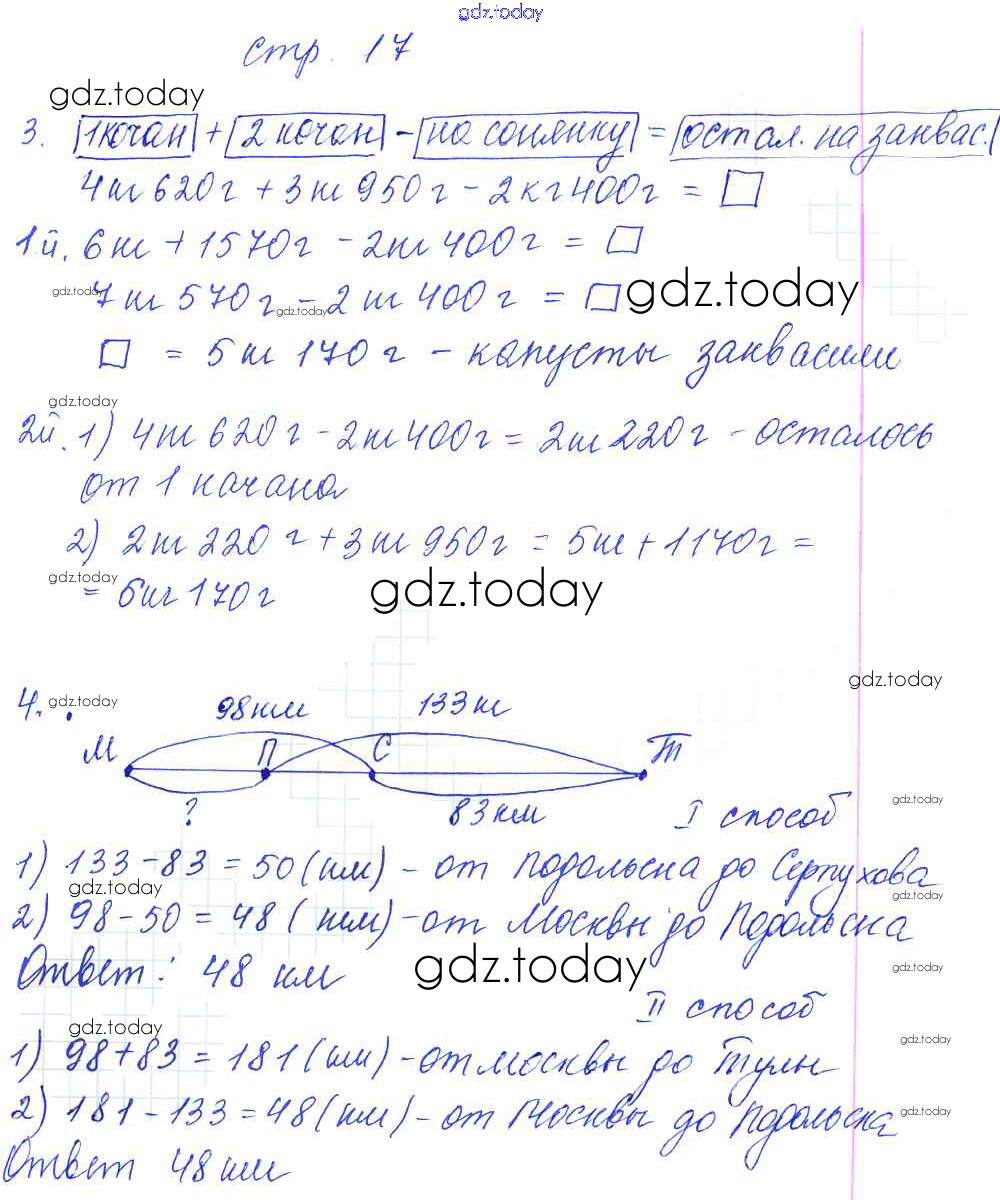 gdz.today
стр. 17
gdz.today
3. 1кочан + 2 кочан - на солянку = остал. на заквас.
4кг 620г + 3кг 950г - 2кг 400г = □
1й. 6кг + 1570г - 2кг 400г = □
gdz.today 7кг 570г gdz.today - 2кг 400г = □ gdz.today
□ = 5кг 170г - капусты заквасили
gdz.today
2й. 1) 4кг 620г - 2кг 400г = 2кг 220г - осталось
от 1 качана
2) 2кг 220г + 3кг 950г = 5кг + 1170г =
gdz.today
= 6кг 170г gdz.today
gdz.today
4. gdz.today 98км 133км
М П С Т
? 83км
gdz.today
I способ
1) 133 - 83 = 50 (км) - от Подольска до Серпухова
gdz.today gdz.today
2) 98 - 50 = 48 (км) - от Москвы до Подольска
Ответ: 48 км gdz.today gdz.today
II способ
gdz.today gdz.today
1) 98 + 83 = 181 (км) - от москвы до Тулы
2) 181 - 133 = 48 (км) - от Москвы до Подольска gdz.today
Ответ 48 км